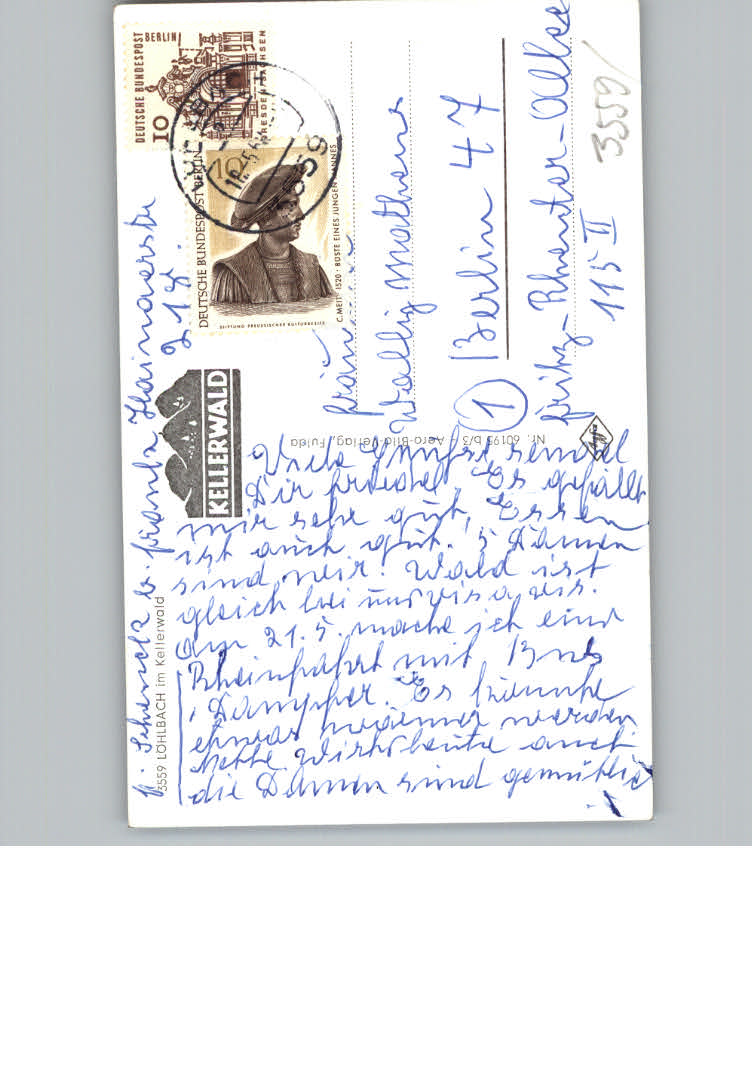 DEUTSCHE BUNDESPOST BERLIN
10
DEUTSCHE BUNDESPOST BERLIN
10
C. MEIT · 1520 · BÜSTE EINES JUNGEN MANNES
STIFTUNG PREUSSISCHER KULTURBESITZ
3559
KELLERWALD
3559 LÖHLBACH im Kellerwald
b. Frantz Hainaerstr
21
Viele Grüße sendet
Dir Friedel. Es gefällt
mir sehr gut, Essen
ist auch gut. 5 Damen
sind wir. Wald ist
gleich bei uns vis a vis.
Am 21.5. mache ich eine
Rheinfahrt mit
Dampfer. Es könnte
etwas wärmer werden
nette Wirtsleute auch
die Damen sind gemütlich
Nr. 60195 b/3 - Aero-Bild-Verlag, Fulda
Agfa
Fräulein
Wallig Matheus
1 Berlin 47
Fritz-Rheuter-Allee
115 II
3559/